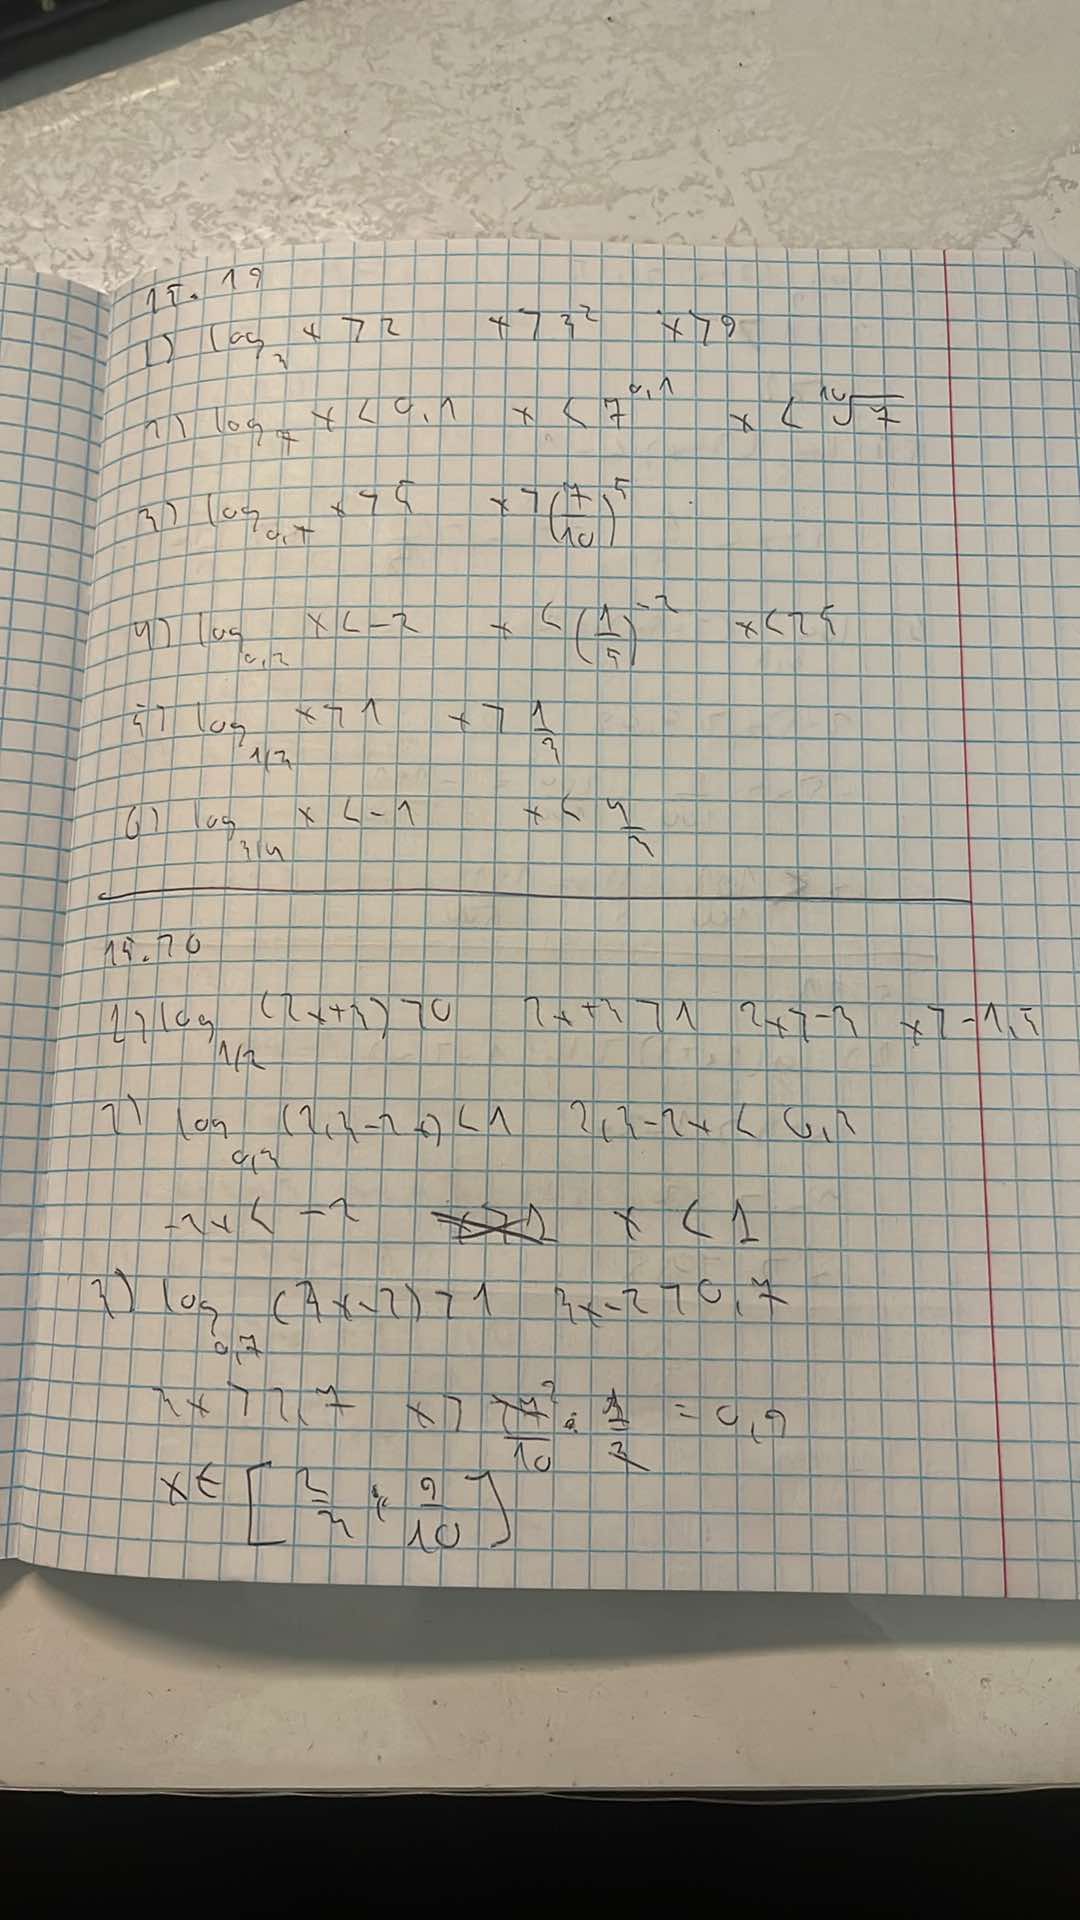 15.19
1) log₃ x > 2 x > 3² x > 9
2) log₇ x < 0,1 x < 7^0,1 x < ¹⁰√7
3) log₀,₇ x > 5 x > (7/10)⁵
4) log₀,₂ x < -2 x < (1/5)⁻² x < 25
5) log₁/₃ x > 1 x > 1/3
6) log₃/₄ x < -1 x < 4/3
15.20
1) log₁/₂ (2x+3) > 0 2x+3 > 1 2x > -3 x > -1,5
2) log₀,₃ (2,3-2x) < 1 2,3-2x < 0,3
-2x < -2 x < 1
3) log₀,₇ (3x-2) > 1 3x-2 > 0,7
3x > 2,7 x > 27/10 : 1/3 = 0,9
x ∈ [2/3 ; 9/10]